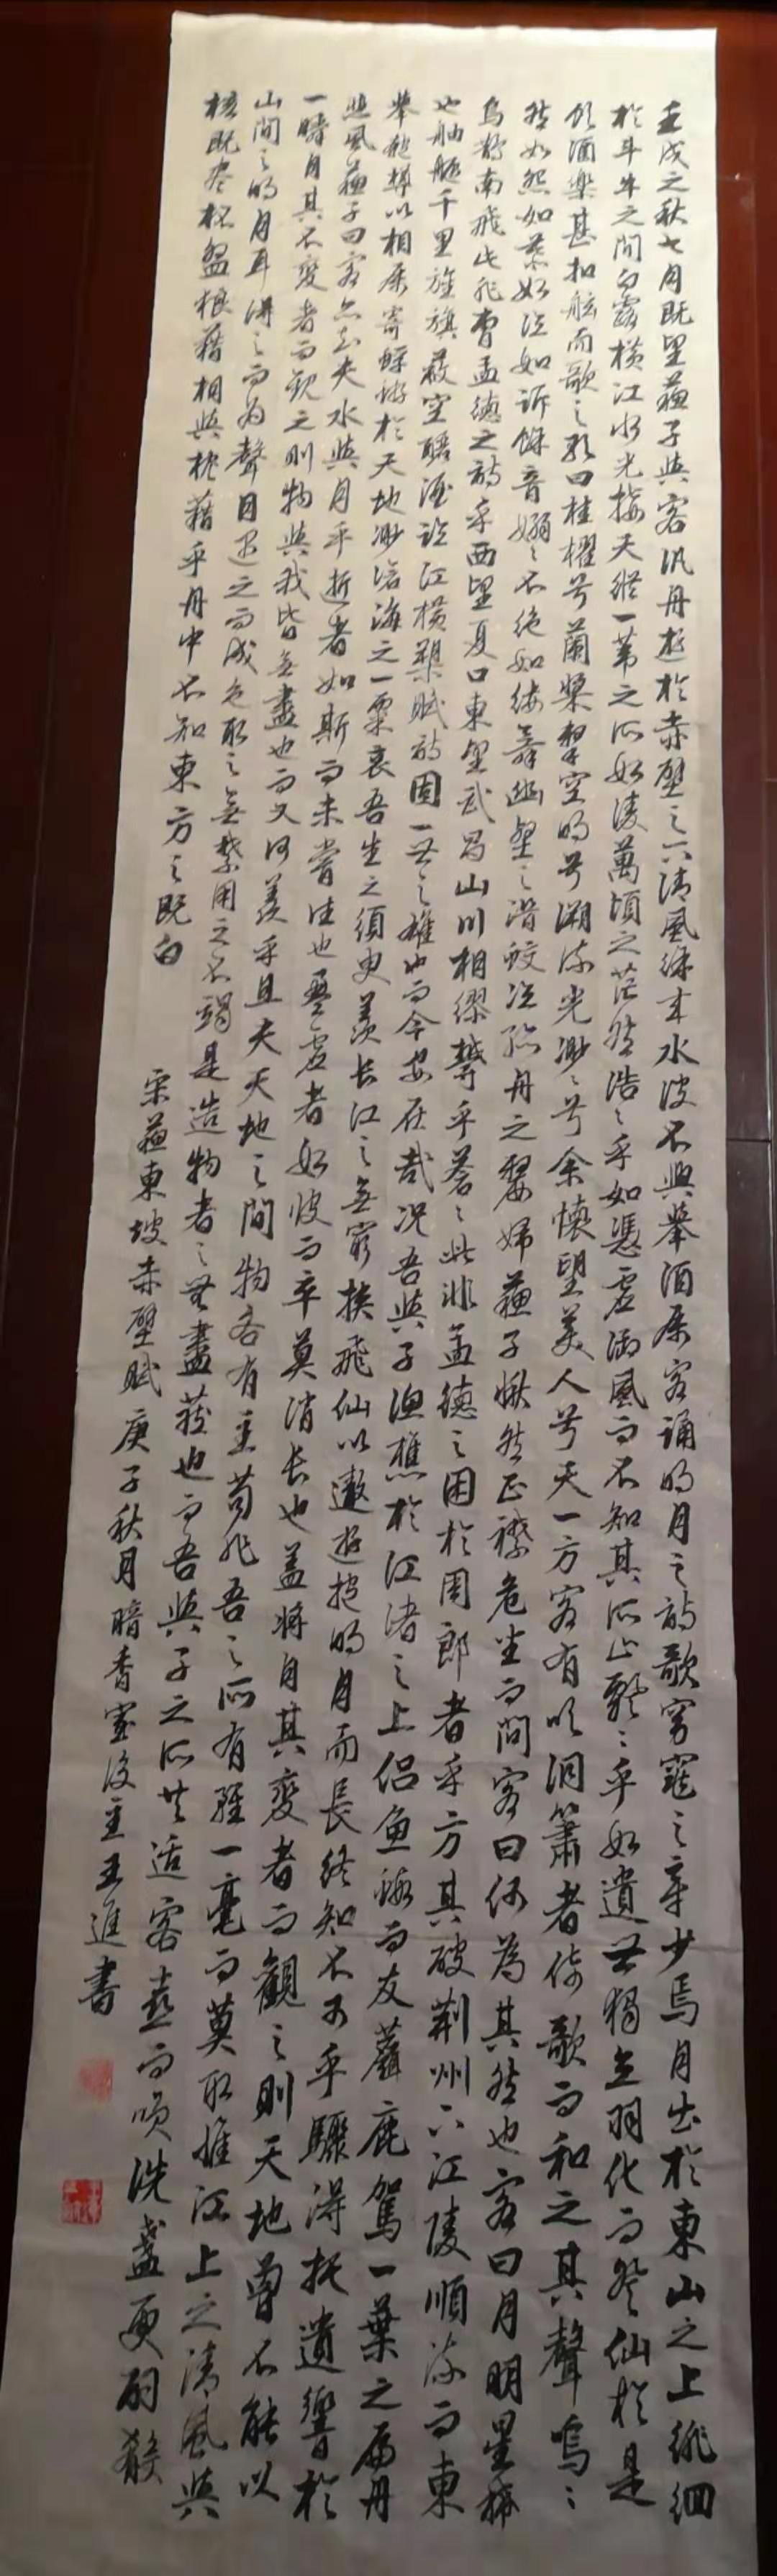 壬戌之秋七月既望蘇子與客汎舟遊於赤壁之下清風徐来水波不興舉酒属客誦明月之詩歌窈窕之章少焉月出於東山之上徘徊
於斗牛之間白露横江水光接天縱一葦之所如凌萬頃之茫然浩〻乎如憑虚御風而不知其所止飄〻乎如遺世獨立羽化而登仙於是
飲酒樂甚扣舷而歌之歌曰桂櫂兮蘭槳擊空明兮溯流光渺〻兮余懷望美人兮天一方客有吹洞簫者倚歌而和之其聲嗚〻
然如怨如慕如泣如訴餘音嫋〻不絶如縷舞幽壑之潜蛟泣孤舟之嫠婦蘇子愀然正襟危坐而問客曰何為其然也客曰月明星稀
烏鵲南飛此非曹孟德之詩乎西望夏口東望武昌山川相繆鬱乎蒼〻此非孟德之困於周郎者乎方其破荆州下江陵順流而東
也舳艫千里旌旗蔽空釃酒臨江横槊賦詩固一世之雄也而今安在哉况吾與子漁樵於江渚之上侣魚鰕而友麋鹿駕一葉之扁舟
舉匏樽以相属寄蜉蝣於天地渺滄海之一粟哀吾生之須臾羨长江之無窮挾飛仙以遨遊抱明月而長終知不可乎驟得托遺響於
悲風蘇子曰客亦知夫水與月乎逝者如斯而未嘗往也盈虚者如彼而卒莫消长也盖将自其變者而觀之則天地曾不能以
一瞬自其不變者而觀之則物與我皆無盡也而又何羨乎且夫天地之間物各有主苟非吾之所有雖一毫而莫取惟江上之清風與
山間之明月耳得之而為聲目遇之而成色取之無禁用之不竭是造物者之無盡藏也而吾與子之所共適客喜而笑洗盞更酌殽
核既盡杯盤狼藉相與枕藉乎舟中不知東方之既白
宋蘇東坡赤壁賦庚子秋月暗香室後主王進書